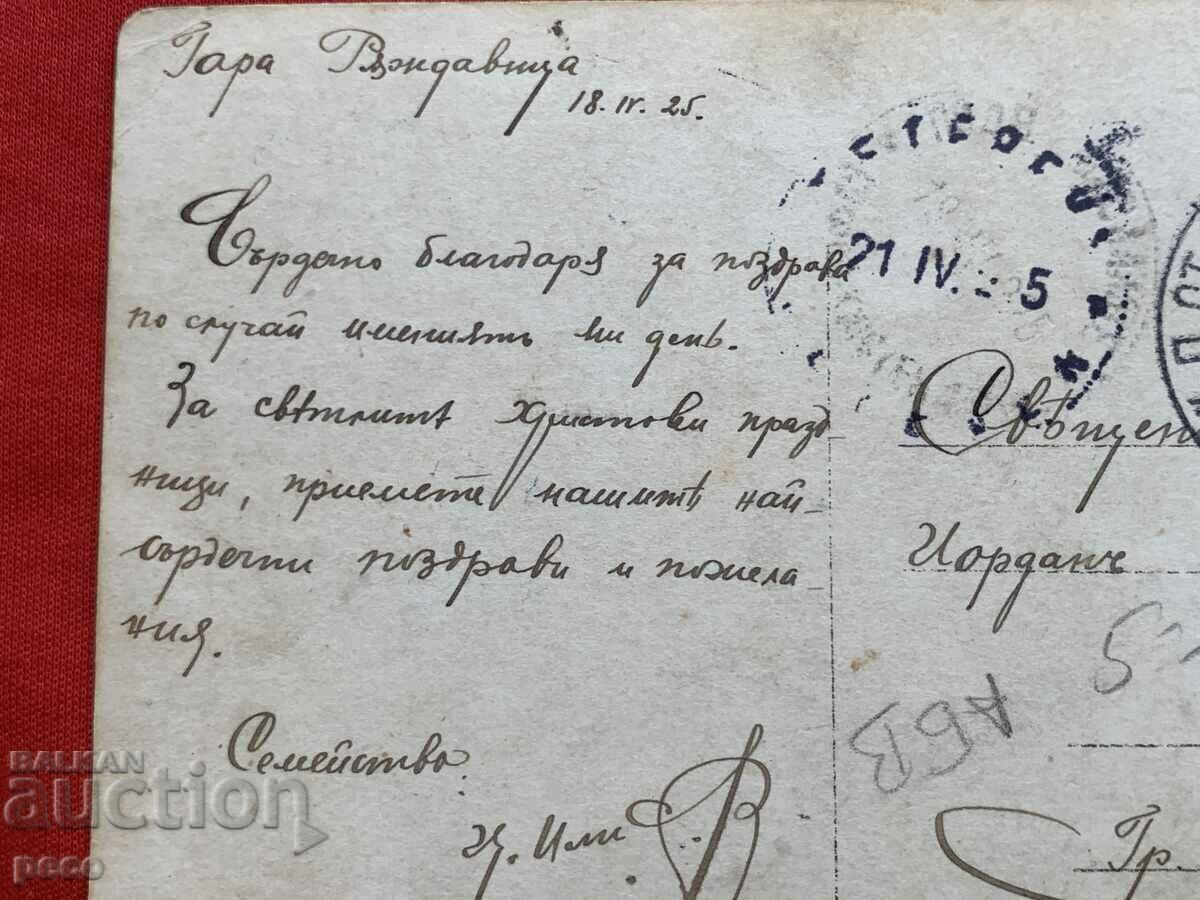 Гара Ръждавица
18. IV. 25.
Сърдечно благодаря за поздрава
по случай именниятъ ми день.
За светлитѣ Христови праз-
ници, приемете нашитѣ най-
сърдечни поздрави и пожела-
ния.
Семейство
Ц. Или
21 IV. 5
ПОТ
Свѣщен
Йорданъ
5
АБВ
Гр.
BALKAN
auction
peco